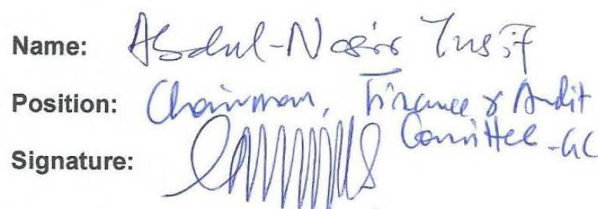 Name: Abdul-Nasir Yusif
Position: Chairman, Finance & Audit
Committee - GC
Signature: